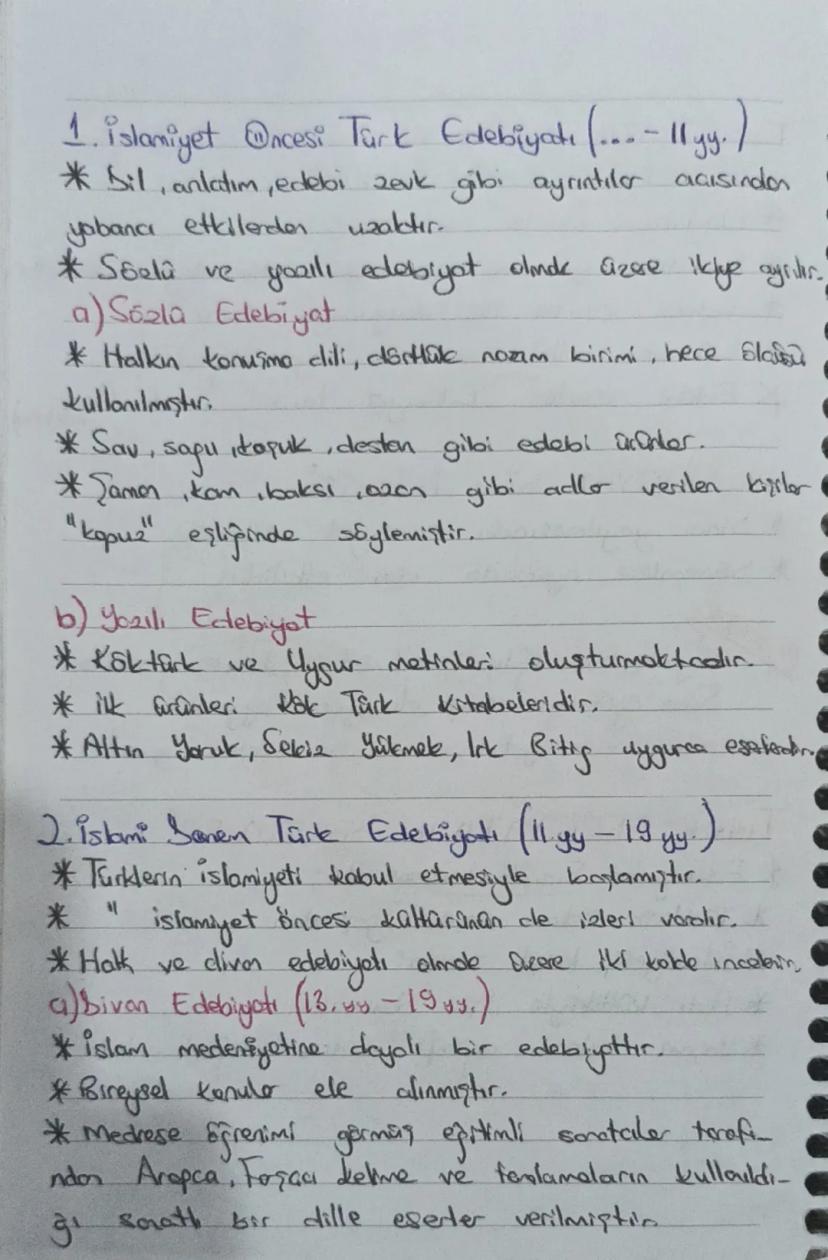 1. İslamiyet Öncesi Türk Edebiyatı (... - 11 yy.)
* Dil, anlatım, edebi zevk gibi ayrıntılar açısından
yabancı etkilerden uzaktır.
* Sözlü ve yazılı edebiyat olmak üzere ikiye ayrılır.
a) Sözlü Edebiyat
* Halkın konuşma dili, dörtlük nazım birimi, hece ölçüsü
kullanılmıştır.
* Sav, sagu, koşuk, destan gibi edebi ürünler.
* Şaman, kam, baksı, ozan gibi adlar verilen kişiler
"kopuz" eşliğinde söylemiştir.
b) Yazılı Edebiyat
* Köktürk ve Uygur metinleri oluşturmaktadır.
* İlk ürünleri Kök Türk Kitabeleridir.
* Altın Yaruk, Sekiz Yükmek, Irk Bitig uygurca eserlerdir.
2. İslami Dönem Türk Edebiyatı (11. yy - 19 yy.)
* Türklerin islamiyeti kabul etmesiyle başlamıştır.
* " islamiyet öncesi kültürünün de izleri vardır.
* Halk ve divan edebiyatı olmak üzere iki kolda incelenir.
a) Divan Edebiyatı (13. yy - 19 yy.)
* İslam medeniyetine dayalı bir edebiyattır.
* Bireysel konular ele alınmıştır.
* Medrese öğrenimi görmüş eğitimli sanatçılar tarafı-
ndan Arapça, Farsça kelime ve tamlamaların kullanıldı-
ğı sanatlı bir dille eserler verilmiştir.